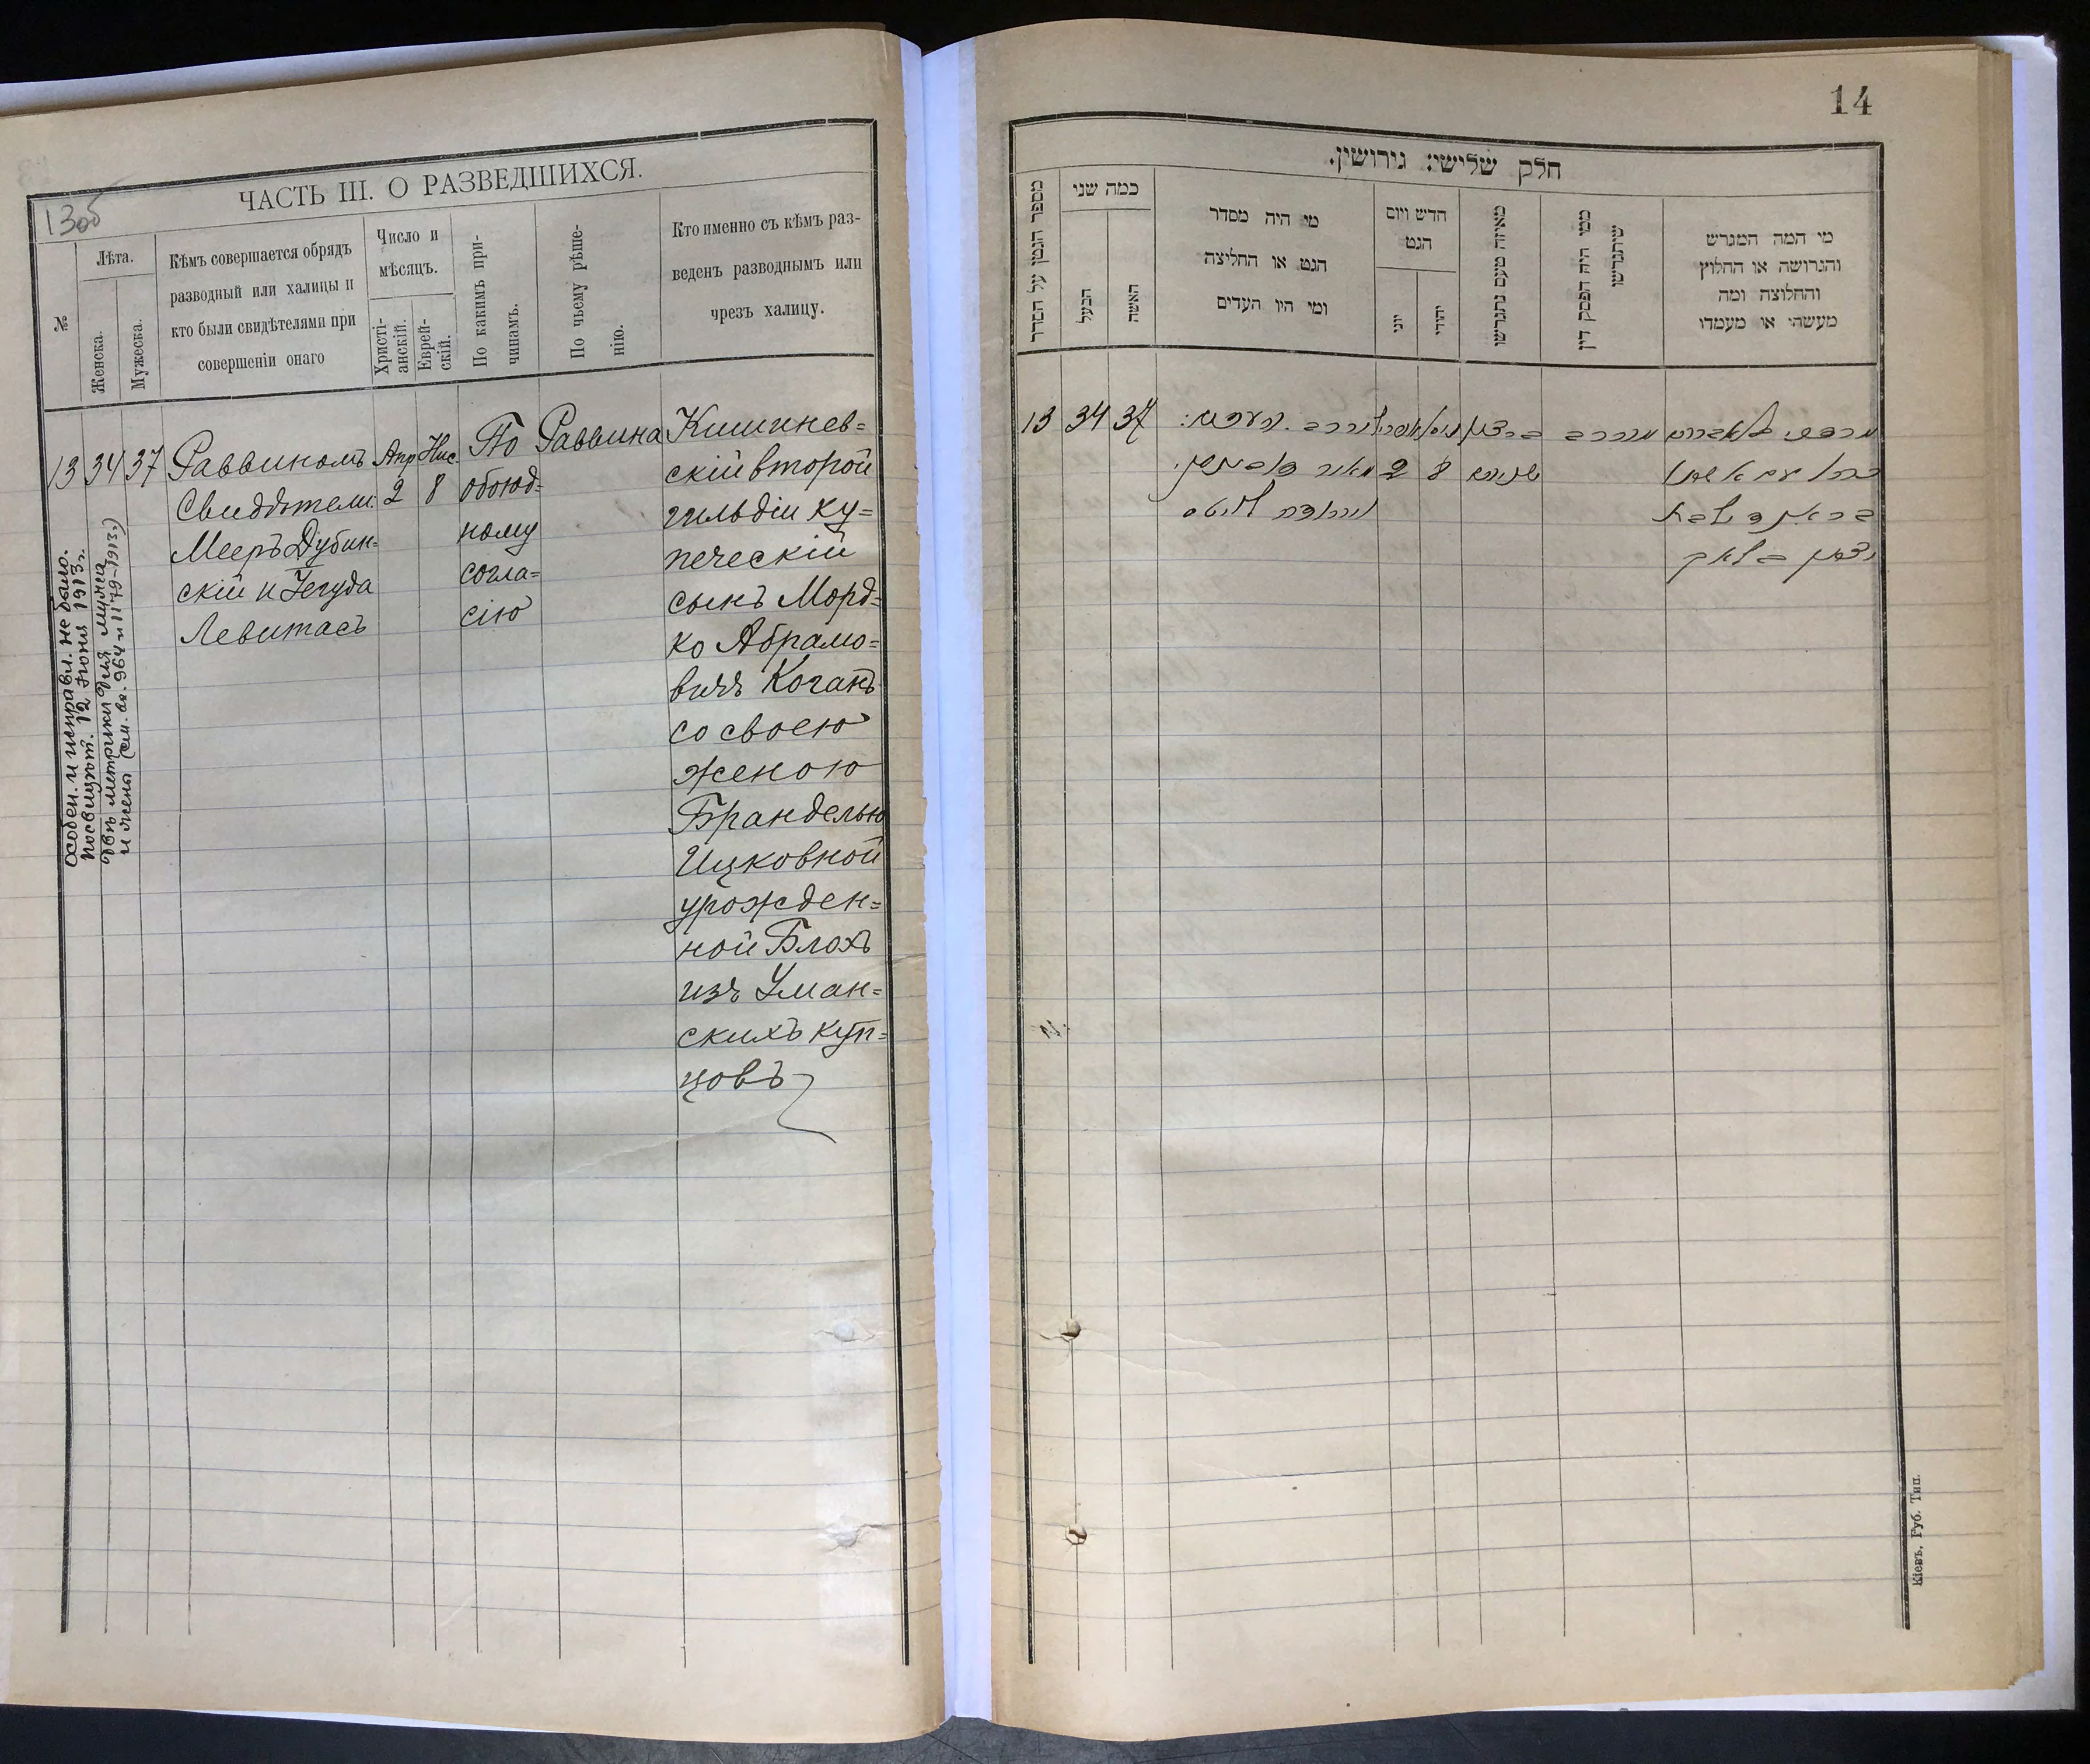 13об
ЧАСТЬ III. О РАЗВЕДШИХСЯ.
№
Лѣта.
Женска.
Мужеска.
Кѣмъ совершается обрядъ
разводный или халицы и
кто были свидѣтелями при
совершеніи онаго
Число и
мѣсяцъ.
Христі-
анскій.
Еврей-
скій.
По какимъ при-
чинамъ.
По чьему рѣше-
нію.
Кто именно съ кѣмъ раз-
веденъ разводнымъ или
чрезъ халицу.
13
34
37
Раввиномъ
Свидѣтели:
Мееръ Дубин=
скій и Іегуда
Левитасъ
Апр
2
Нис.
8
По
обоюд=
ному
согла=
сію
Раввина
Кишинев=
скій второй
гильдіи ку=
печескій
сынъ Морд=
ко Абрамо=
вичъ Коганъ
со своею
женою
Бранделью
Ицковной
урожден=
ной Блохъ
изъ Уман=
скихъ куп=
цовъ
Особен. и исправл. не было.
12 Іюня 1913 г.
Двѣ метрики для мужа
и жены (см. вх. 964 и 1179-1913)
14
חלק שלישי: גירושין.
מספר הגטין על הסדר
כמה שני
הבעל
האשה
מי היה מסדר
הגט או החליצה
ומי היו העדים
חדש ויום
הגט
יוני
יהודי
מאיזה טעם נתגרשו
ממי היה הפסק דין
שיתגרשו
מי המה המגרש
והגרושה או החלוץ
והחלוצה ומה
מעשהי או מעמדו
13
34
37
הרב. העדים:
מאיר דובינסקי
ויהודה לויטס
2
8
ברצון
שניהם
מהרב
מרדכי בן אברם
כהן עם אשתו
בראנדל בת
יצחק בלאך
Кіевъ, Губ. Тип.